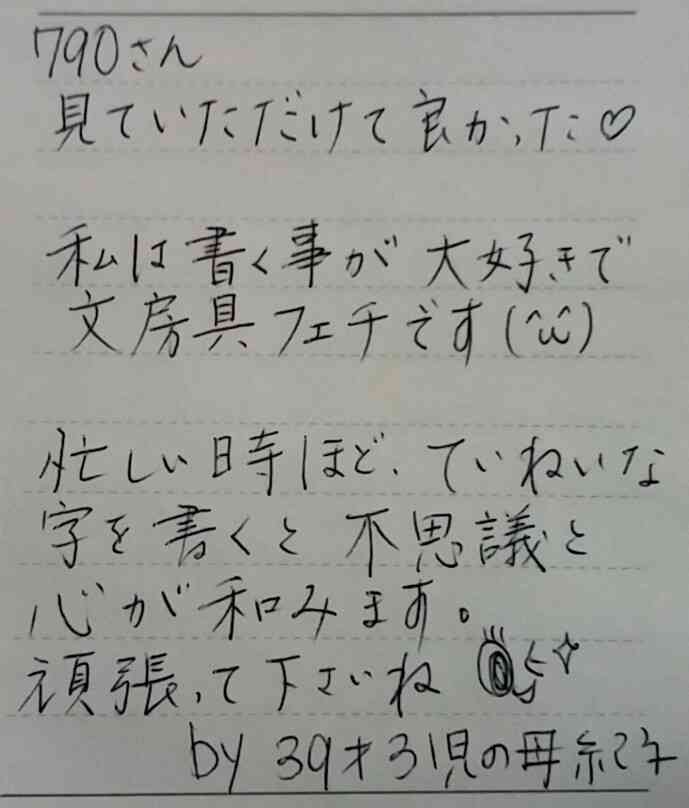 790さん
見ていただけて良かった♡
私は書く事が大好きで
文房具フェチです(^ω^)
忙しい時ほど、ていねいな
字を書くと不思議と
心が和みます。
頑張って下さいね
by 39才3児の母